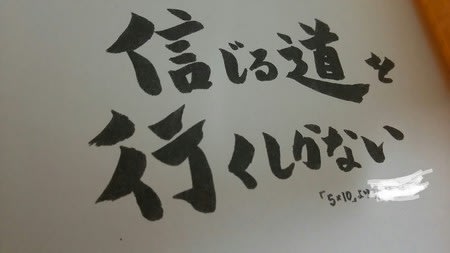 信じる道を
行くしかない
「5×10」より